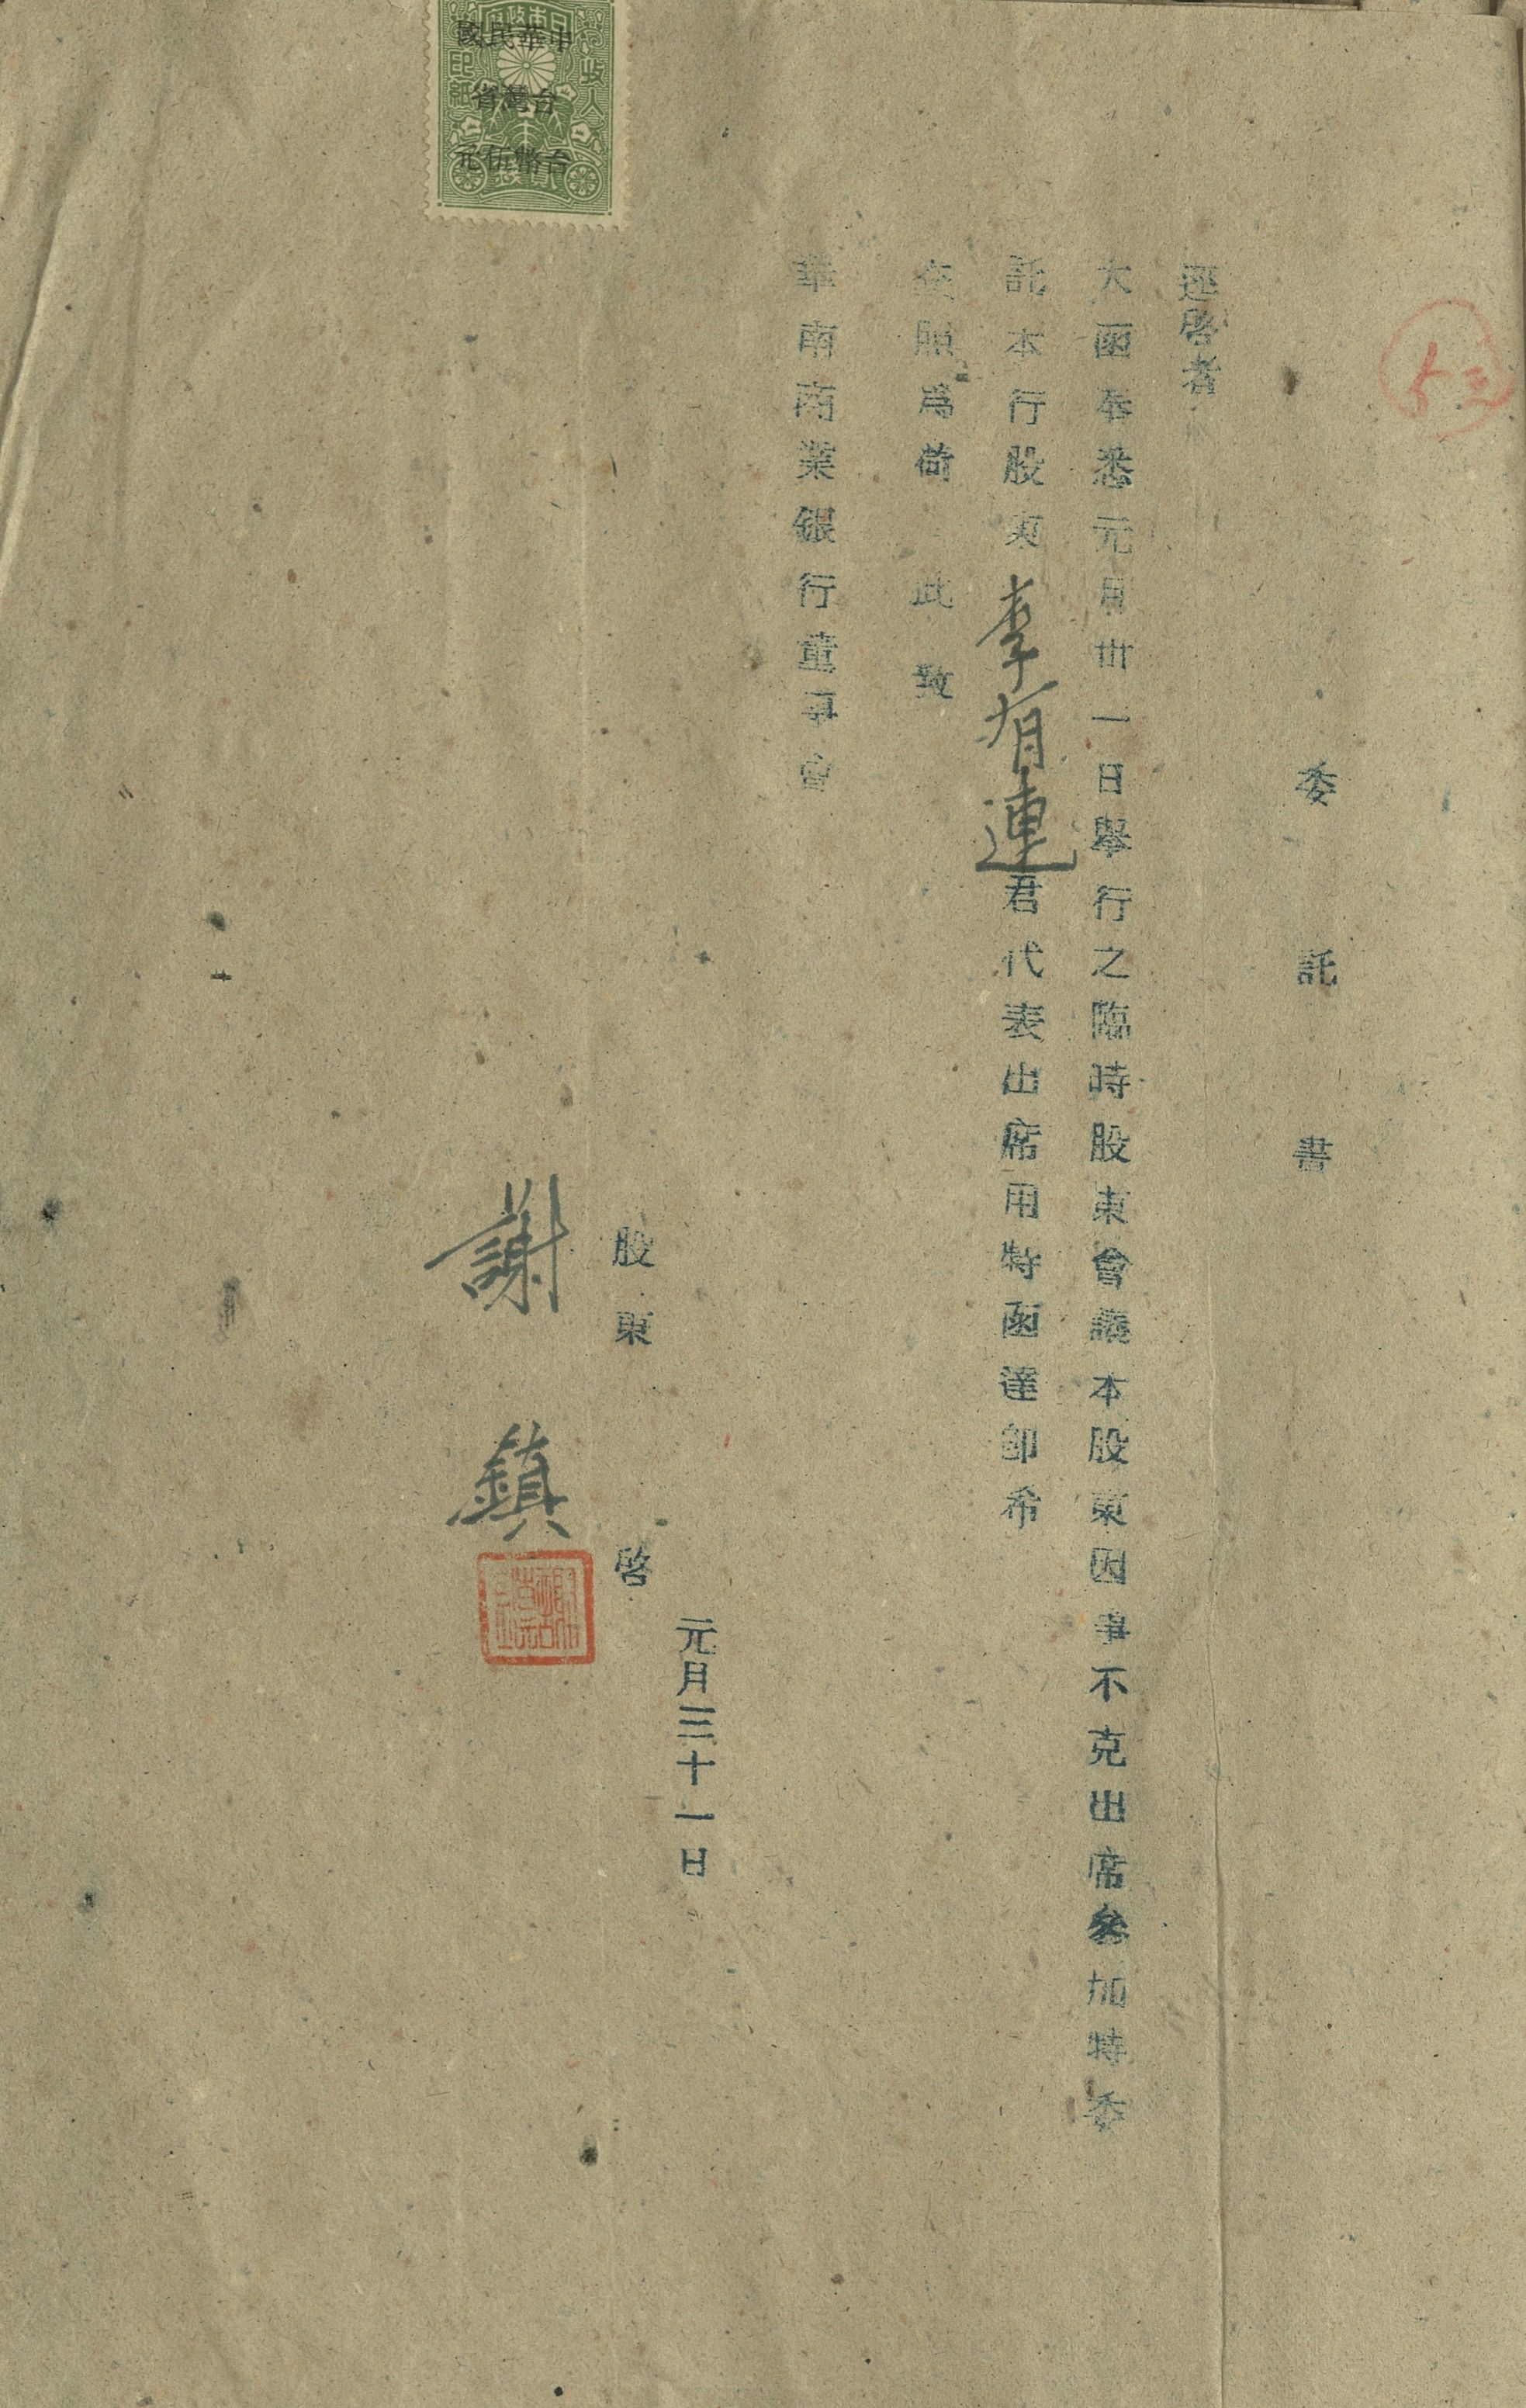 五三
委託書
逕啓者
大函奉悉元月卅一日舉行之臨時股東會議本股東因事不克出席叅加特委
託本行股東李有連君代表出席用特函達卽希
查照爲荷 此致
華南商業銀行董事會
元月三十一日
股東 啓
謝鎮
中華民國
台灣省
台幣伍元
收入印紙